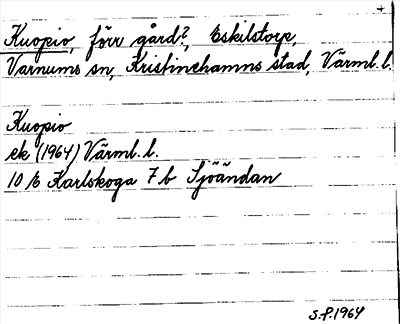 Kuopio, förr gård?, Eskilstorp,
Varnums sn, Kristinehamns stad, Värml. l.
Kuopio
ek (1964) Värml. l.
10 E Karlskoga 7 b Sjöändan
S.P. 1964